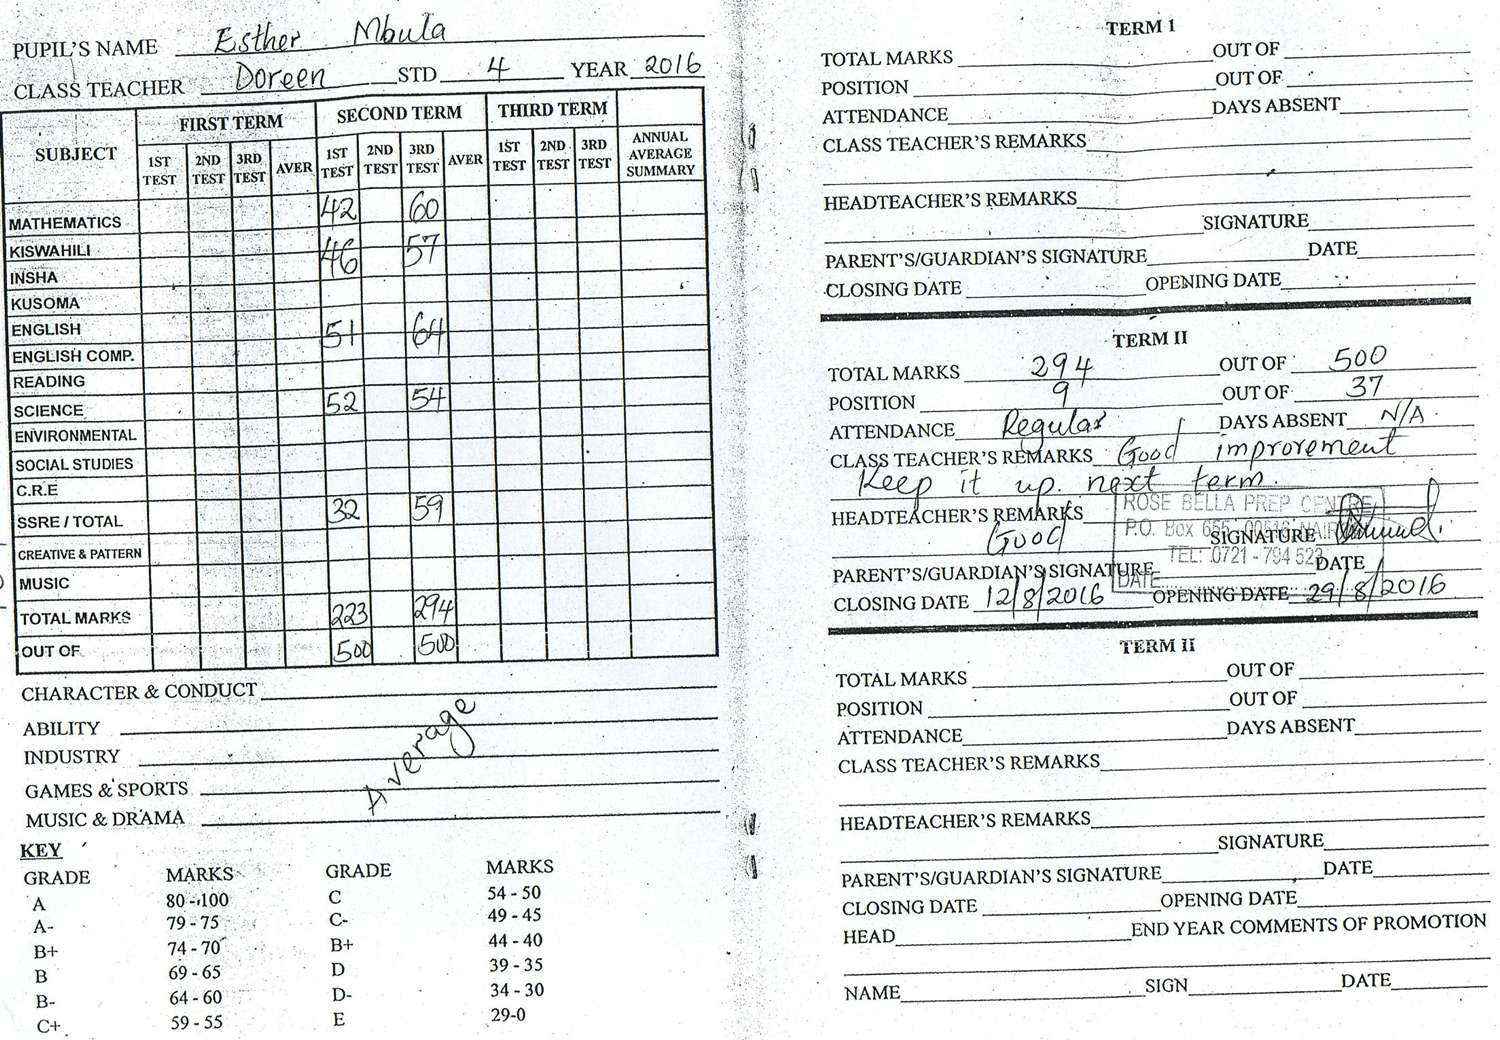 PUPIL'S NAME Esther Mbula
CLASS TEACHER Doreen STD 4 YEAR 2016
SUBJECT FIRST TERM SECOND TERM THIRD TERM ANNUAL AVERAGE SUMMARY
1ST TEST 2ND TEST 3RD TEST AVER 1ST TEST 2ND TEST 3RD TEST AVER 1ST TEST 2ND TEST 3RD TEST
MATHEMATICS 42 60
KISWAHILI 46 57
INSHA
KUSOMA
ENGLISH 51 64
ENGLISH COMP.
READING
SCIENCE 52 54
ENVIRONMENTAL
SOCIAL STUDIES
C.R.E
SSRE / TOTAL 32 59
CREATIVE & PATTERN
MUSIC
TOTAL MARKS 223 294
OUT OF 500 500
CHARACTER & CONDUCT
ABILITY
INDUSTRY
GAMES & SPORTS
MUSIC & DRAMA
Average
KEY
GRADE MARKS GRADE MARKS
A 80 - 100 C 54 - 50
A- 79 - 75 C- 49 - 45
B+ 74 - 70 B+ 44 - 40
B 69 - 65 D 39 - 35
B- 64 - 60 D- 34 - 30
C+ 59 - 55 E 29-0
TERM 1
TOTAL MARKS OUT OF
POSITION OUT OF
ATTENDANCE DAYS ABSENT
CLASS TEACHER'S REMARKS
HEADTEACHER'S REMARKS
SIGNATURE
PARENT'S/GUARDIAN'S SIGNATURE DATE
CLOSING DATE OPENING DATE
TERM II
TOTAL MARKS 294 OUT OF 500
POSITION 9 OUT OF 37
ATTENDANCE Regular DAYS ABSENT N/A
CLASS TEACHER'S REMARKS Good improvement
Keep it up next term.
ROSE BELLA PREP CENTRE
HEADTEACHER'S REMARKS
Good SIGNATURE
P.O. Box
TEL: 0721 - 794 523
PARENT'S/GUARDIAN'S SIGNATURE DATE
DATE
CLOSING DATE 12/8/2016 OPENING DATE 29/8/2016
TERM II
TOTAL MARKS OUT OF
POSITION OUT OF
ATTENDANCE DAYS ABSENT
CLASS TEACHER'S REMARKS
HEADTEACHER'S REMARKS
SIGNATURE
PARENT'S/GUARDIAN'S SIGNATURE DATE
CLOSING DATE OPENING DATE
HEAD END YEAR COMMENTS OF PROMOTION
NAME SIGN DATE